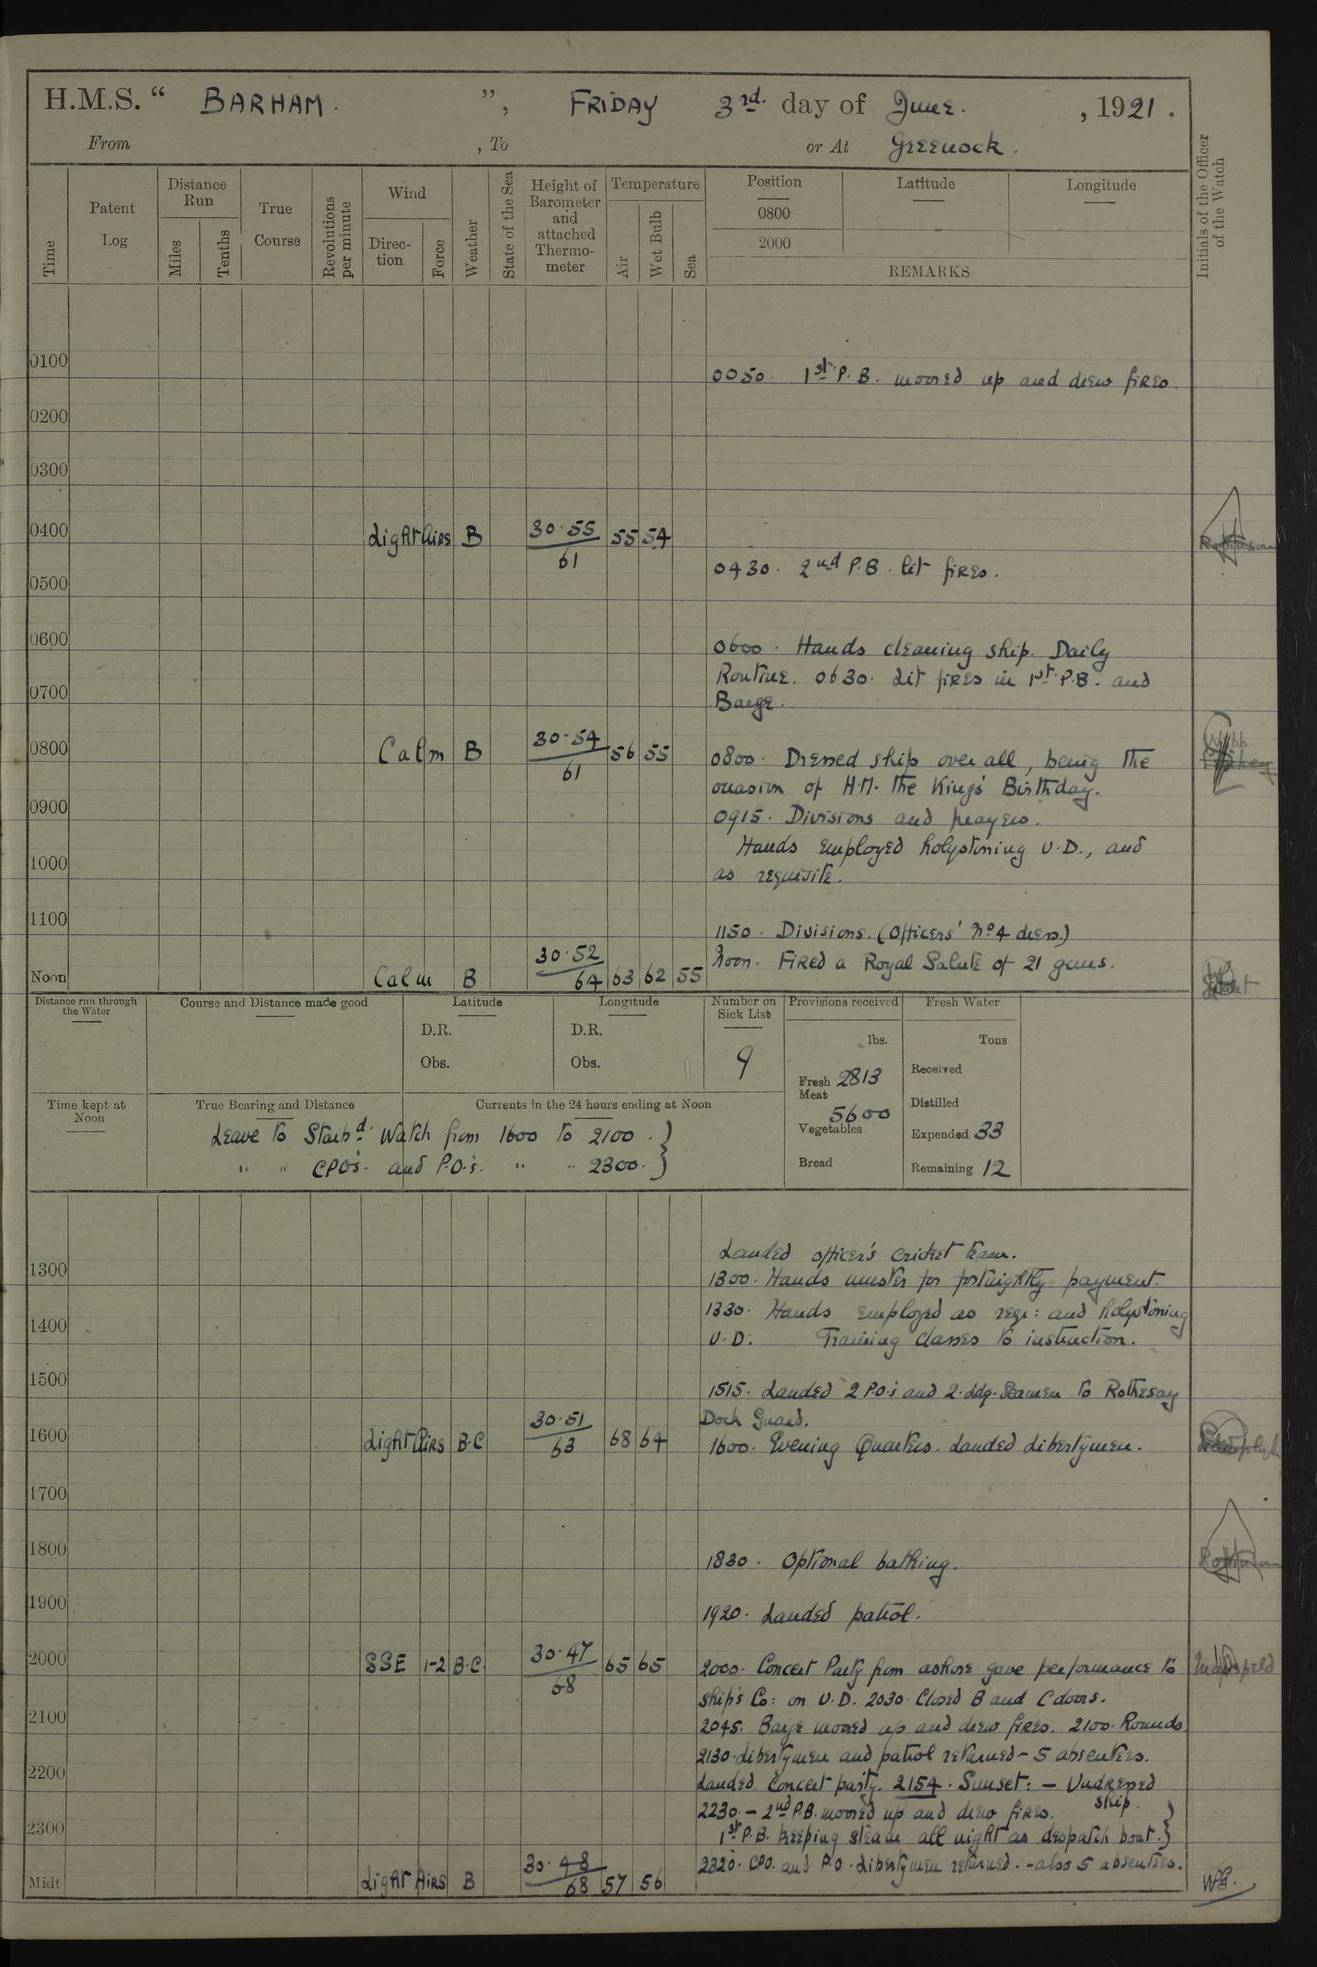 H.M.S. “ BARHAM. ”, FRIDAY 3rd. day of June. , 1921.
From , To or At Greenock.
Time
Patent Log
Distance Run
Miles
Tenths
True Course
Revolutions per minute
Wind
Direction
Force
Weather
State of the Sea
Height of Barometer and attached Thermometer
Temperature
Air
Wet Bulb
Sea
Position
0800
2000
Latitude
Longitude
REMARKS
Initials of the Officer of the Watch
0100
0050. 1st. P.B. moored up and drew fires.
0200
0300
0400 Light Airs B 30.55 61 55 54
0430. 2nd P.B. lit fires.
0500
0600
0600. Hands cleaning ship. Daily
Routine. 0630. Lit fires in 1st. P.B. and
0700
Barge.
0800 Calm B 30.54 61 56 55
0800. Dressed ship over all, being the
occasion of H.M. the King's Birthday.
0900
0915. Divisions and prayers.
Hands employed holystoning U.D., and
1000
as requisite.
1100
1150. Divisions. (Officers' No 4 dress.)
Noon Calm B 30.52 64 63 62 55
Noon. Fired a Royal Salute of 21 guns.
Distance run through the Water
Course and Distance made good
Latitude
D.R.
Obs.
Longitude
D.R.
Obs.
Number on Sick List
9
Provisions received
lbs.
Fresh Meat 2813
5600
Vegetables
Bread
Fresh Water
Tons
Received
Distilled
Expended 33
Remaining 12
Time kept at Noon
True Bearing and Distance
Currents in the 24 hours ending at Noon
Leave to Starbd. Watch from 1600 to 2100. }
" " CPO's. and P.O.'s. " " 2300. }
Landed officer's cricket team.
1300
1300. Hands muster for fortnightly payment.
1330. Hands employed as req: and holystoning
1400
U.D. Training classes to instruction.
1500
1515. Landed 2 P.O.'s and 2. Ldg. Seamen to Rothesay
Dock Guard.
1600 Light Airs B.C 30.51 63 68 64
1600. Evening Quarters. Landed libertymen.
1700
1800
1830. Optional bathing.
1900
1920. Landed patrol.
2000 SSE 1-2 B.C. 30.47 68 65 65
2000. Concert Party from ashore gave performance to
ship's Co: on U.D. 2030. Closed B and C doors.
2100
2045. Barge moored up and drew fires. 2100. Rounds
2130. Libertymen and patrol returned - 5 absentees.
2200
Landed Concert party. 2154. Sunset: - Undressed
ship.
2230. - 2nd P.B. moored up and drew fires.
2300
1st P.B. keeping steam all night as despatch boat. }
2320. CPO. and P.O. libertymen returned. - also 5 absentees.
Midt Light Airs B 30.48 68 57 56